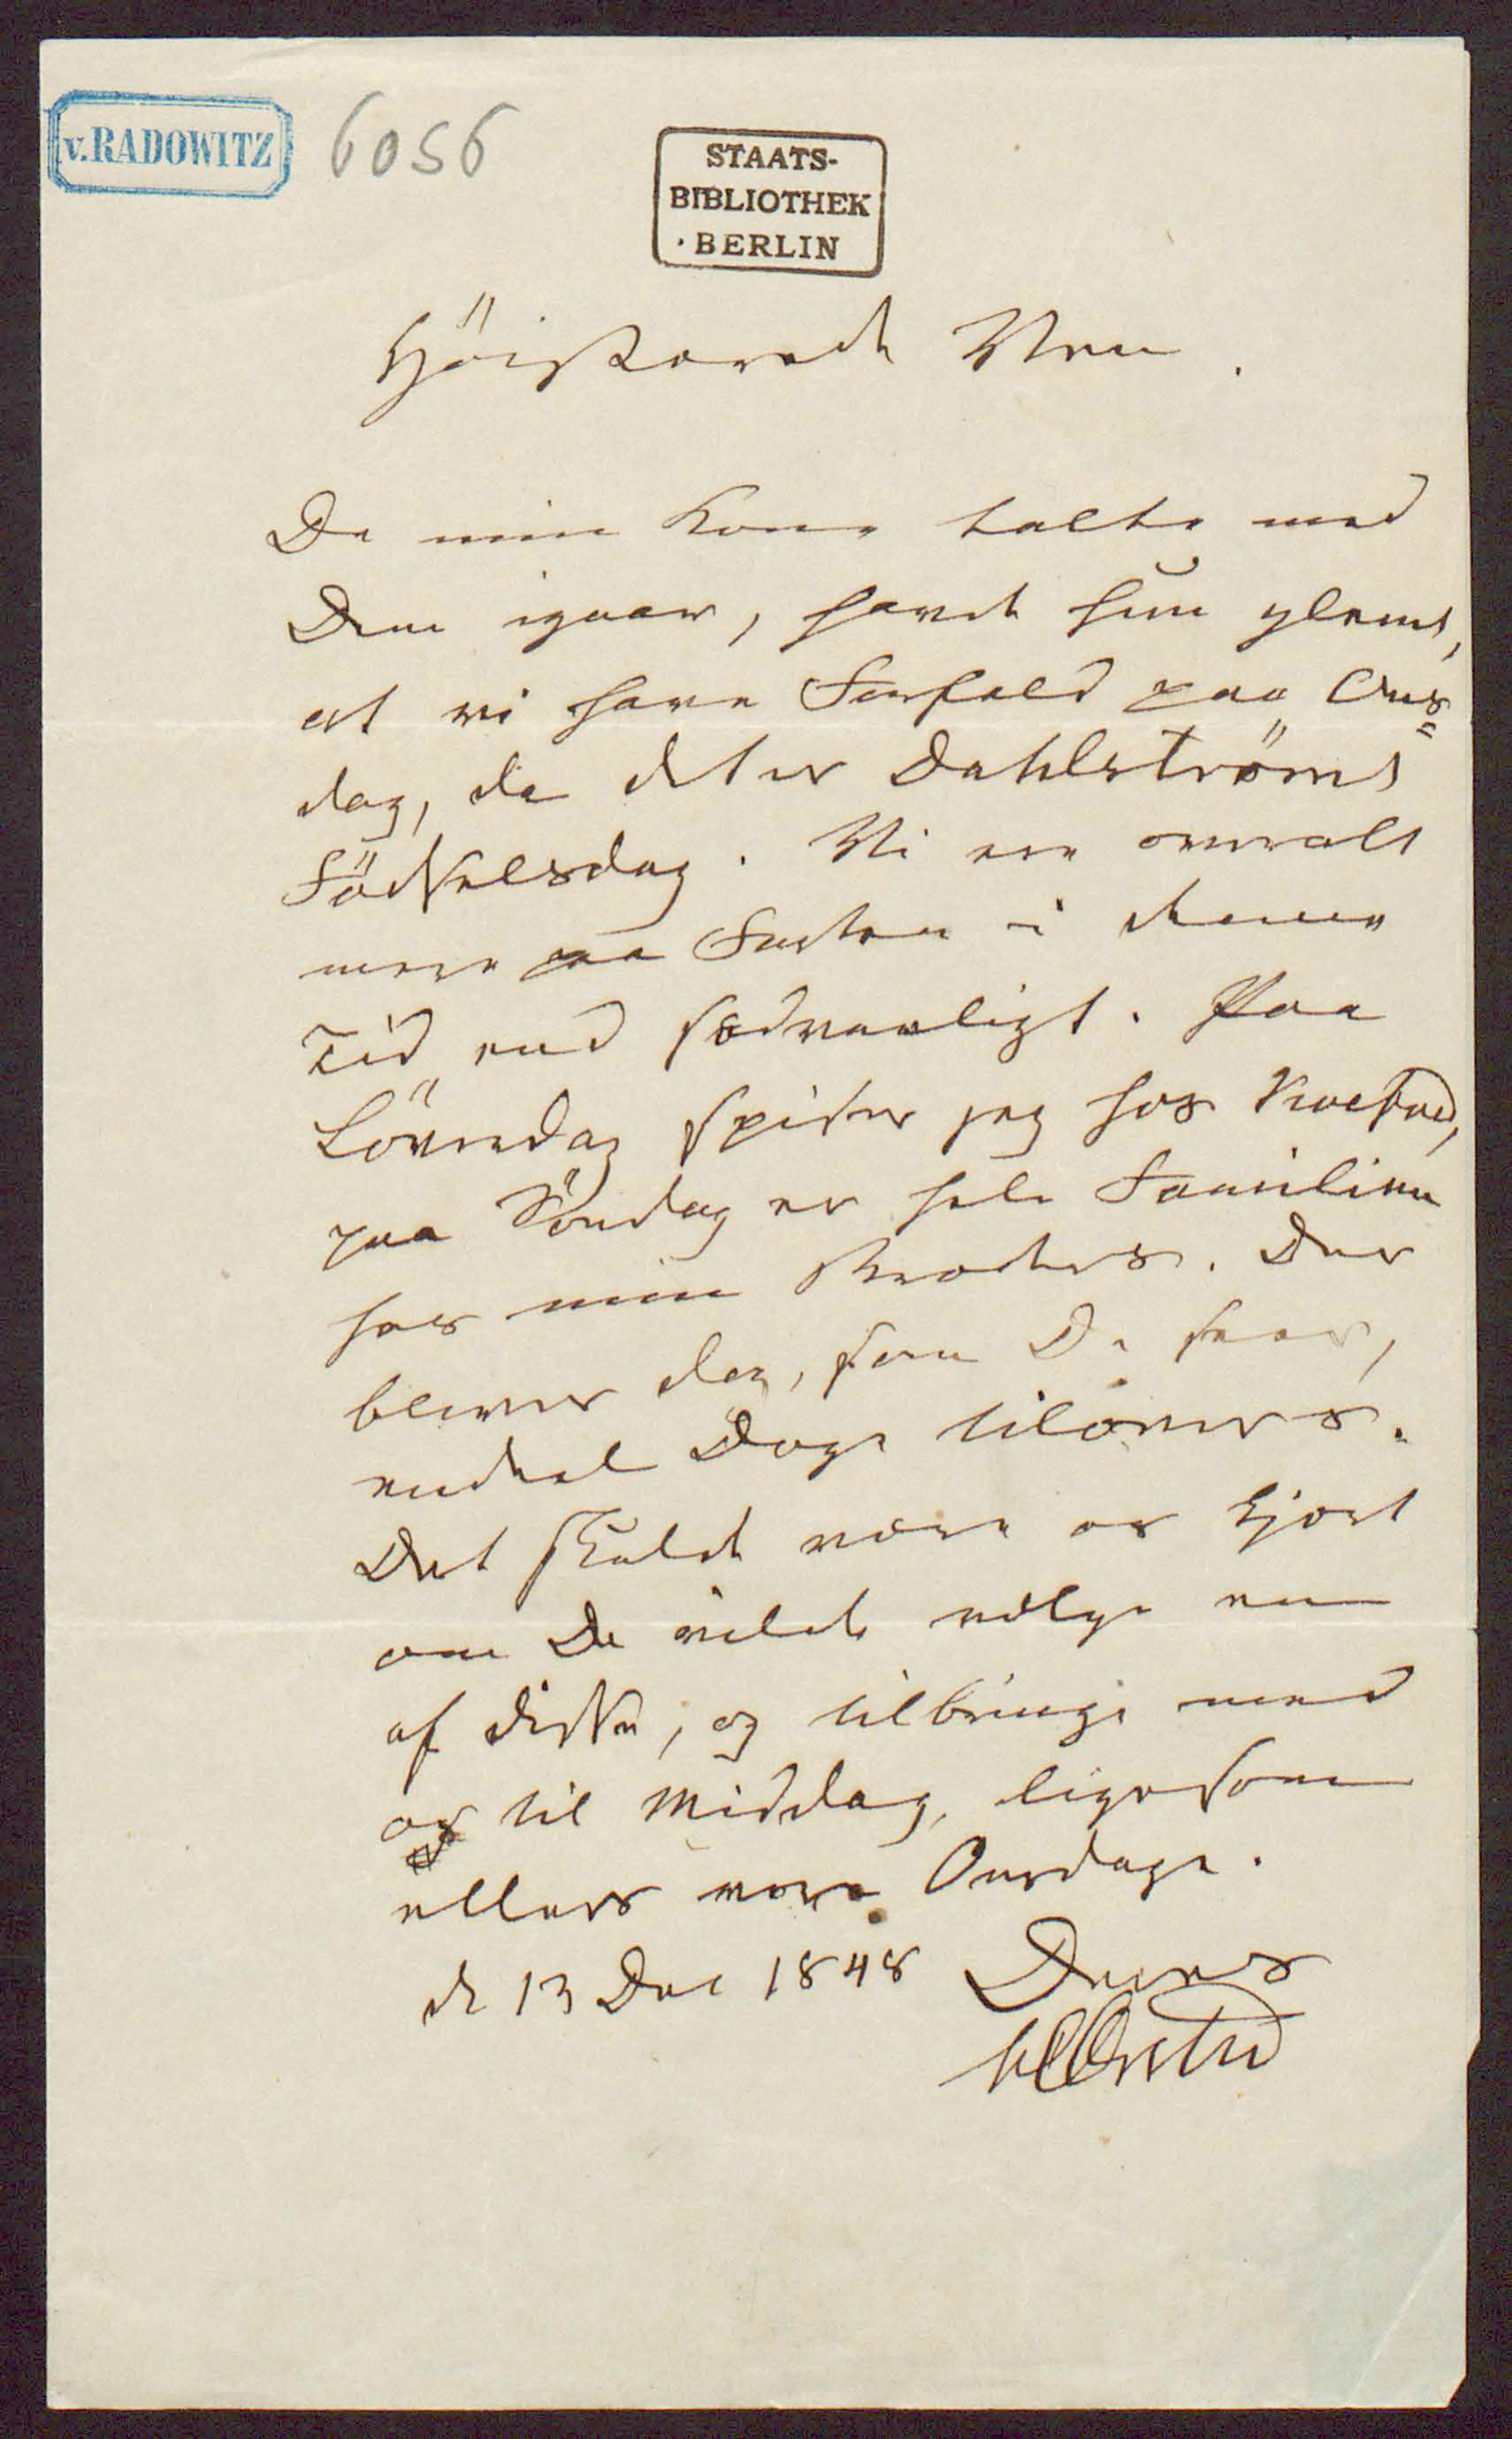 v. RADOWITZ 6056
STAATS-
BIBLIOTHEK
BERLIN
Höistærede Ven.
Da min Kone talte med
Dem igaar, havde hun glemt,
at vi have Forfald paa Ons=
dag, da det er Dahlströms
Födselsdag. Vi ere overalt
mere paa Farten i denne
Tid end sædvanligt. Paa
Löverdag spiser jeg hos
paa Söndag er hele Familien
hos min Broders. Der
bliver dog, som De seer,
endeel Dage tilovers.
Det skulde være os kjært
om De vilde vælge en
af disse, og tilbringe med
os til Middag, ligesom
ellers vore Onsdage.
d 13 Dec 1848 Deres
HCØrsted